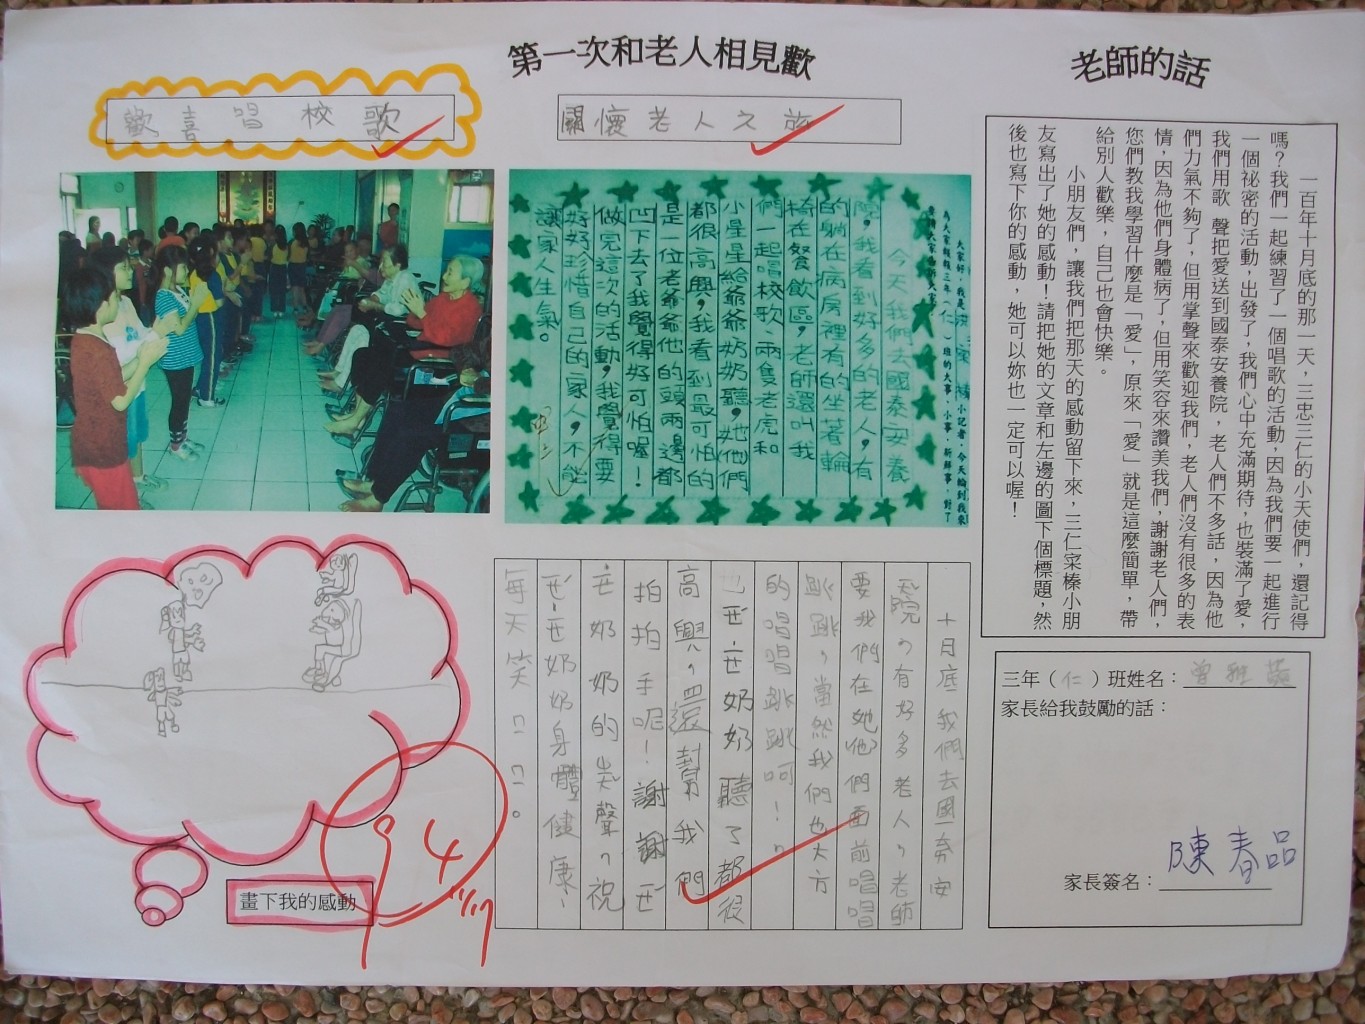 第一次和老人相見歡
老師的話
歡喜唱校歌
關懷老人之旅
一百年十月底的那一天，三忠三仁的小天使們，還記得
嗎？我們一起練習了一個唱歌的活動，因為我們要一起進行
一個祕密的活動，出發了，我們心中充滿期待，也裝滿了愛，
我們用歌 聲把愛送到國泰安養院，老人們不多話，因為他
們力氣不夠了，但用掌聲來歡迎我們，老人們沒有很多的表
情，因為他們身體病了，但用笑容來讚美我們，謝謝老人們，
您們教我學習什麼是「愛」，原來「愛」 就是這麼簡單，帶
給別人歡樂，自己也會快樂。
小朋友們，讓我們把那天的感動留下來，三仁寀榛小朋
友寫出了她的感動！請把她的文章和左邊的圖下個標題，然
後也寫下你的感動，她可以妳也一定可以喔！
今天我們去國泰安養
院，我看到好多的老人，有
的躺在病房裡有的坐著輪
椅在餐飲區，老師還叫我
們一起唱校歌、兩隻老虎和
小星星給爺爺奶奶聽，她們
都很高興，我看到最可怕的
是一位老爺爺他的頭兩邊都
凹下去了我覺得好可怕喔！
做完這次的活動，我覺得要
好好珍惜自己的家人，不能
讓家人生氣。
十月底我們去國 安
院，有好多老人，老師
要我們在她他們面前唱唱
跳跳，當然我們也大方
的唱唱跳跳呵！
奶奶聽了都很
高興，還幫我們
拍拍手呢！謝謝ㄝ
ㄝ奶奶的笑聲，祝
ㄝㄝ奶奶身體健康、
每天笑ㄇㄇ。
畫下我的感動
94
11/17
三年（仁）班姓名：曾雅
家長給我鼓勵的話：
家長簽名：陳春品